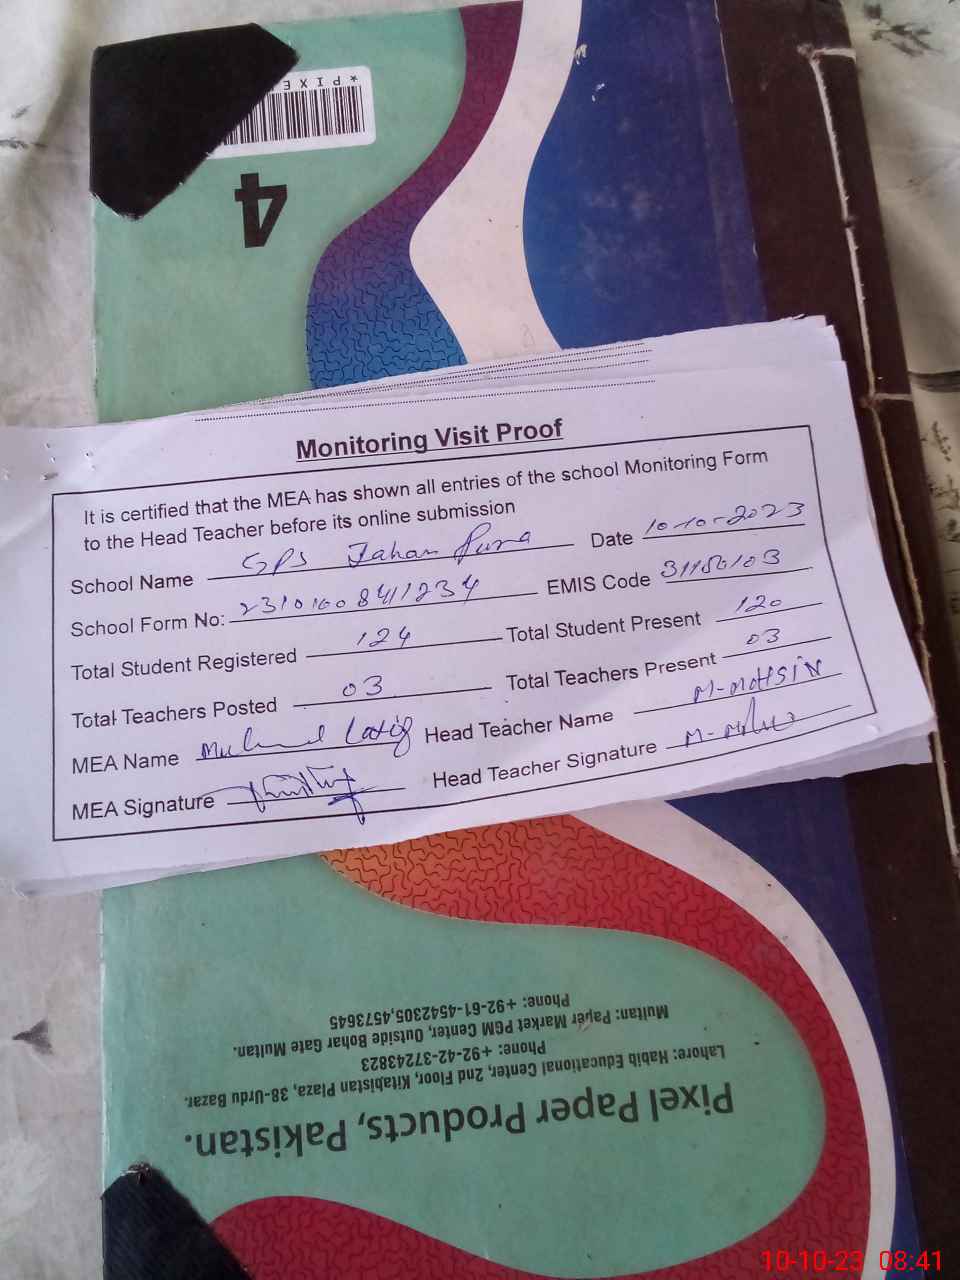 * P I X E
4
Monitoring Visit Proof
It is certified that the MEA has shown all entries of the school Monitoring Form
to the Head Teacher before its online submission
School Name GPS Jahan Pura Date 10-10-2023
School Form No: 2310100841234 EMIS Code
Total Student Registered 124 Total Student Present 120
Total Teachers Posted 03 Total Teachers Present 03
MEA Name Latif Head Teacher Name M-MOHSIN
MEA Signature Head Teacher Signature
Pixel Paper Products, Pakistan.
Lahore: Habib Educational Center, 2nd Floor, Kitabistan Plaza, 38-Urdu Bazar.
Phone: +92-42-37243823
Multan: Paper Market PGM Center, Outside Bohar Gate Multan.
Phone: +92-61-4542305,4573645
10-10-23 08:41